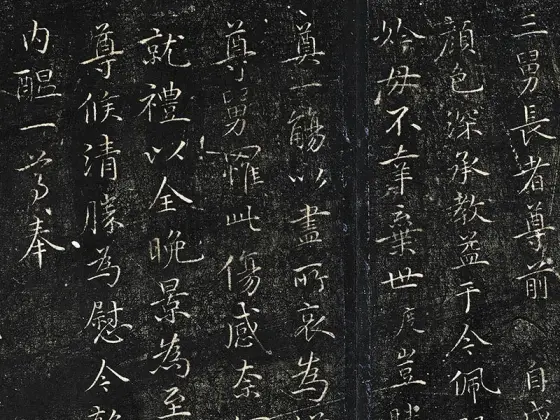 三舅長者尊前 自
顔色深承教益于今佩
妗母不幸棄世 豈
奠一觴以盡所哀為
尊舅罹此傷感奈
就禮以全晚景為至
尊候清勝為慰今
内醖一尊奉